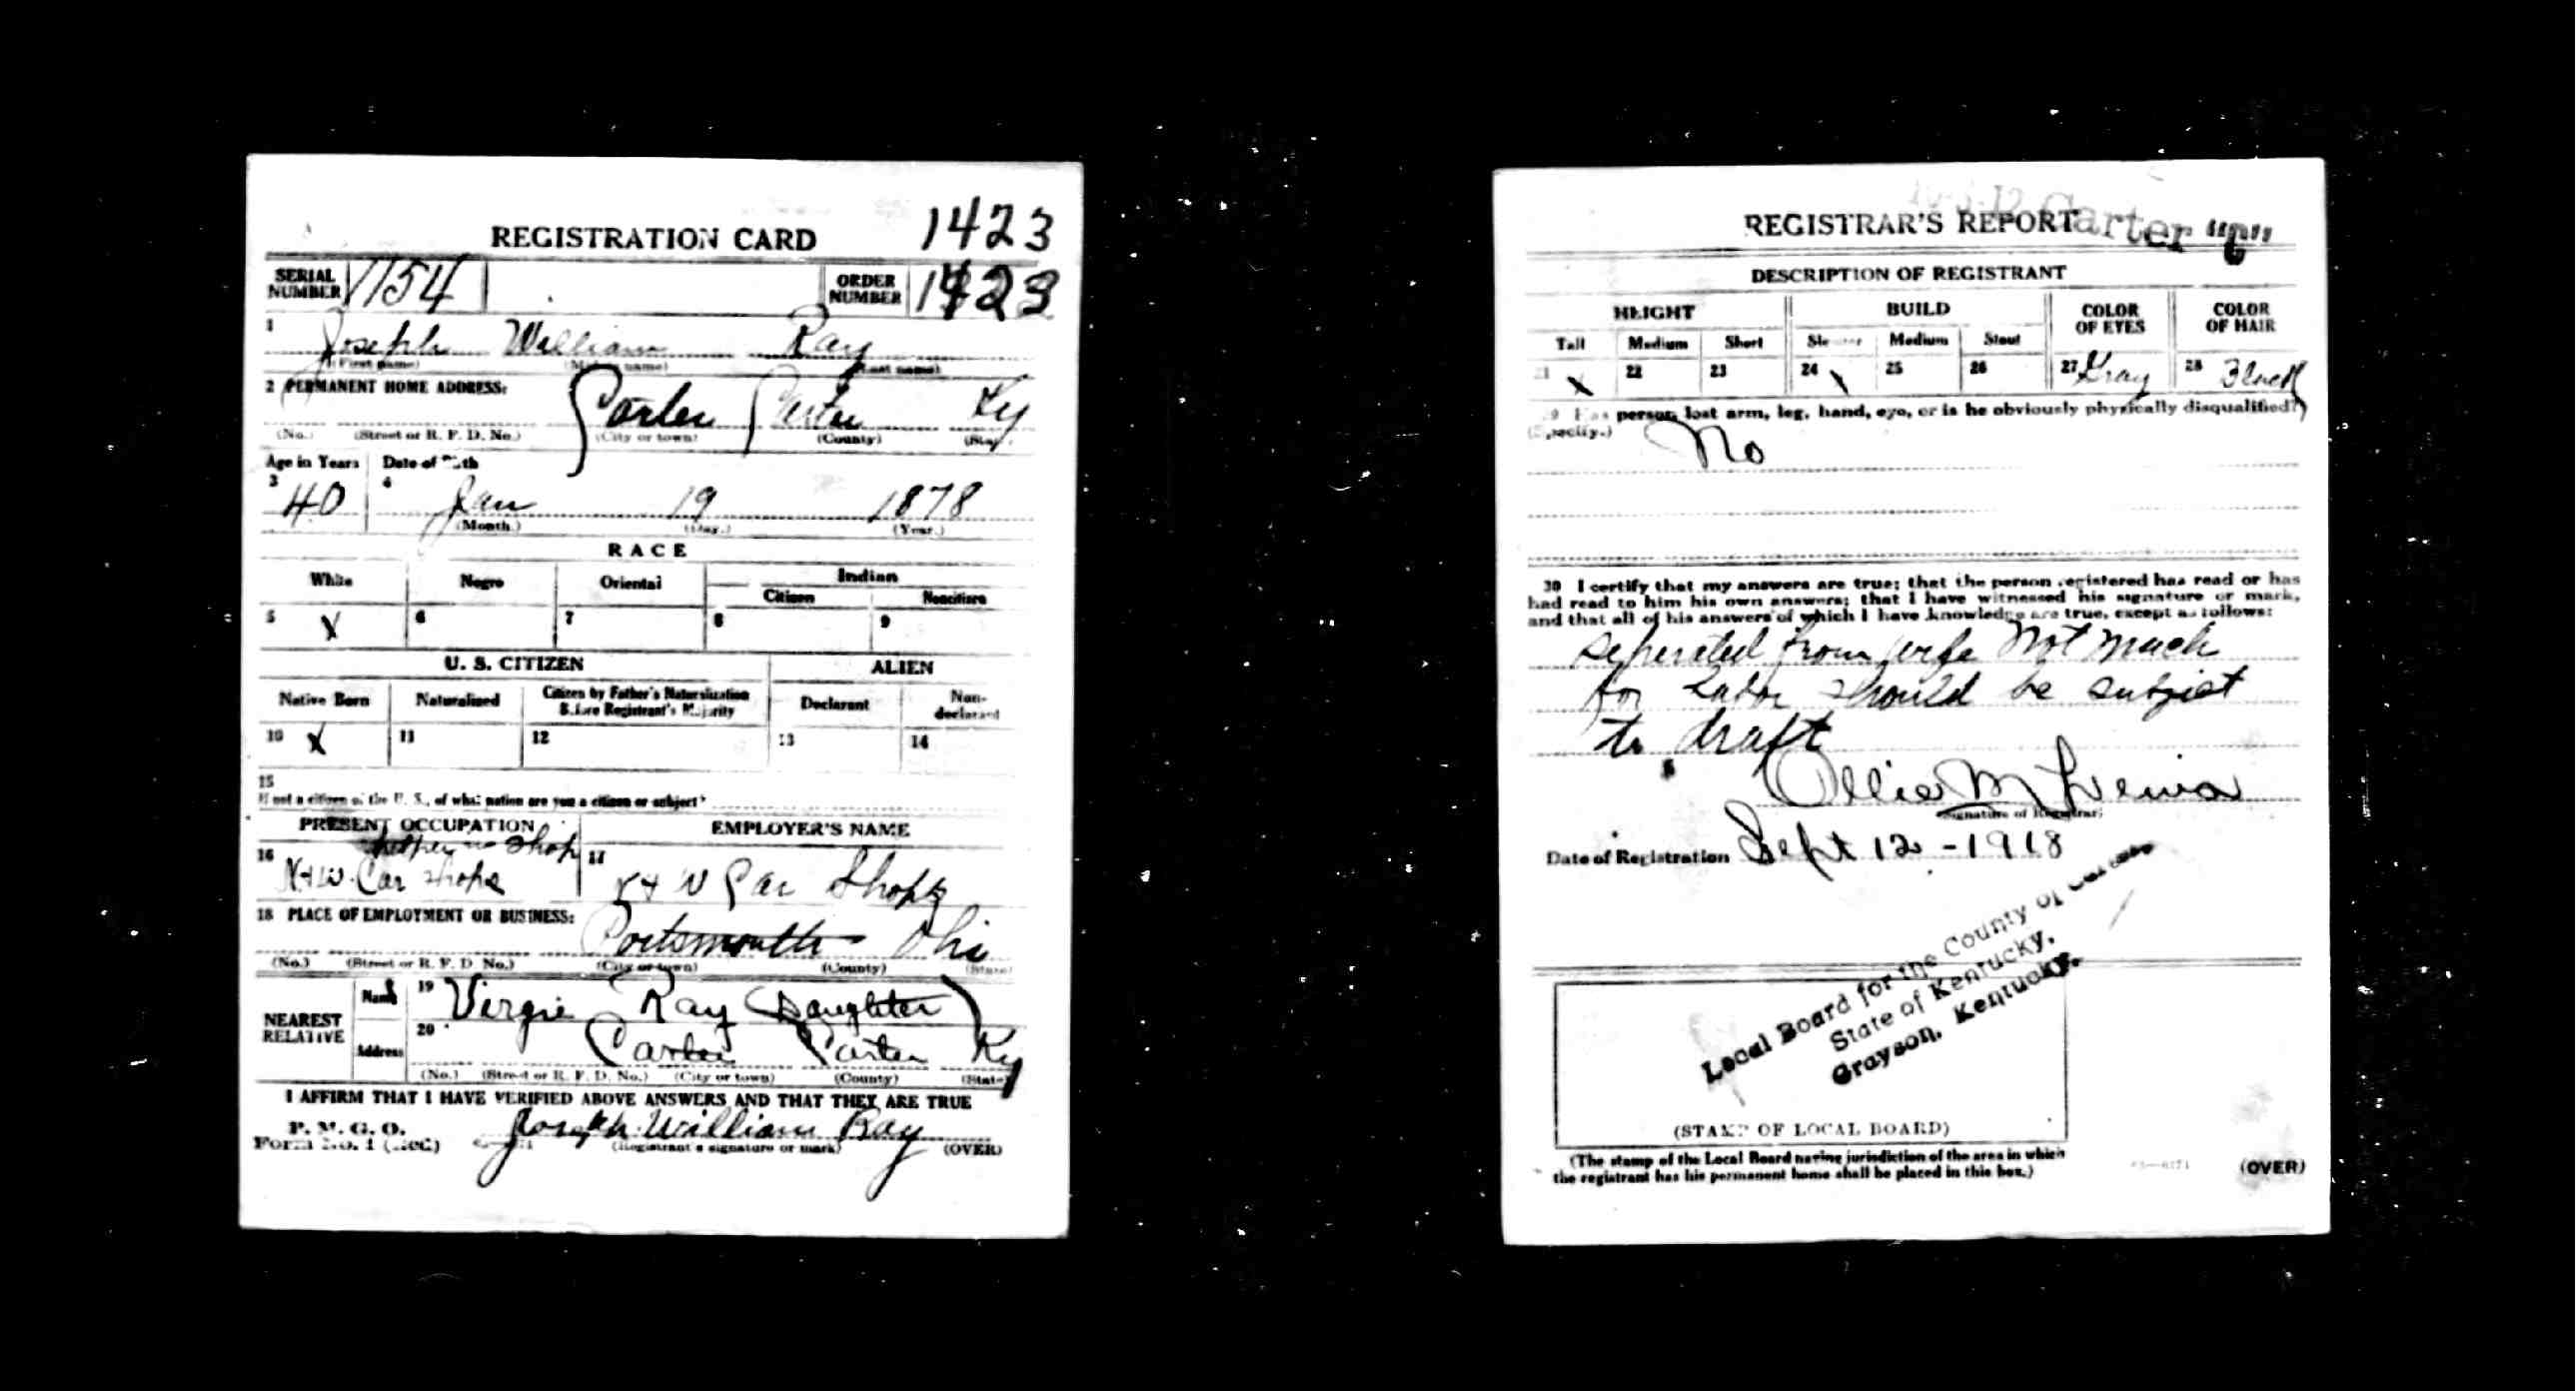 REGISTRATION CARD 1423
SERIAL NUMBER 1154 ORDER NUMBER 1423
1 Joseph William Ray
(First name) (Middle name) (Last name)
2 PERMANENT HOME ADDRESS:
Carter Carter Ky
(No.) (Street or R. F. D. No.) (City or town) (County) (State)
Age in Years Date of Birth
3 40 4 Jan 19 1878
(Month.) (Day.) (Year.)
RACE
White Negro Oriental Indian
Citizen Noncitizen
5 X 6 7 8 9
U. S. CITIZEN ALIEN
Native Born Naturalized Citizen by Father's Naturalization Before Registrant's Majority Declarant Non-declarant
10 X 11 12 13 14
15
If not a citizen of the U. S., of what nation are you a citizen or subject?
PRESENT OCCUPATION EMPLOYER'S NAME
Shop
16 N+W Car Shops 17 N+W Car Shops
18 PLACE OF EMPLOYMENT OR BUSINESS:
Portsmouth Ohio
(No.) (Street or R. F. D. No.) (City or town) (County) (State)
NEAREST RELATIVE
Name 19 Virgie Ray (Daughter)
Address 20 Carter Carter Ky
(No.) (Street or R. F. D. No.) (City or town) (County) (State)
I AFFIRM THAT I HAVE VERIFIED ABOVE ANSWERS AND THAT THEY ARE TRUE
P. M. G. O.
Form No. 1 (Red) Joseph William Ray
(Registrant's signature or mark) (OVER)
Carter
REGISTRAR'S REPORT
DESCRIPTION OF REGISTRANT
HEIGHT BUILD COLOR OF EYES COLOR OF HAIR
Tall Medium Short Slender Medium Stout
21 X 22 23 24 \ 25 26 27 Gray 28 Black
29 Has person lost arm, leg, hand, eye, or is he obviously physically disqualified?
(Specify.) No
30 I certify that my answers are true; that the person registered has read or has
had read to him his own answers; that I have witnessed his signature or mark,
and that all of his answers of which I have knowledge are true, except as follows:
Seperated from wife Not much
for Labor should be subject
to draft
Ollie M Lewis
(Signature of Registrar)
Date of Registration Sept 12 - 1918
Local Board for the County of Carter
State of Kentucky,
Grayson, Kentucky.
(STAMP OF LOCAL BOARD)
(The stamp of the Local Board having jurisdiction of the area in which
the registrant has his permanent home shall be placed in this box.)
(OVER)